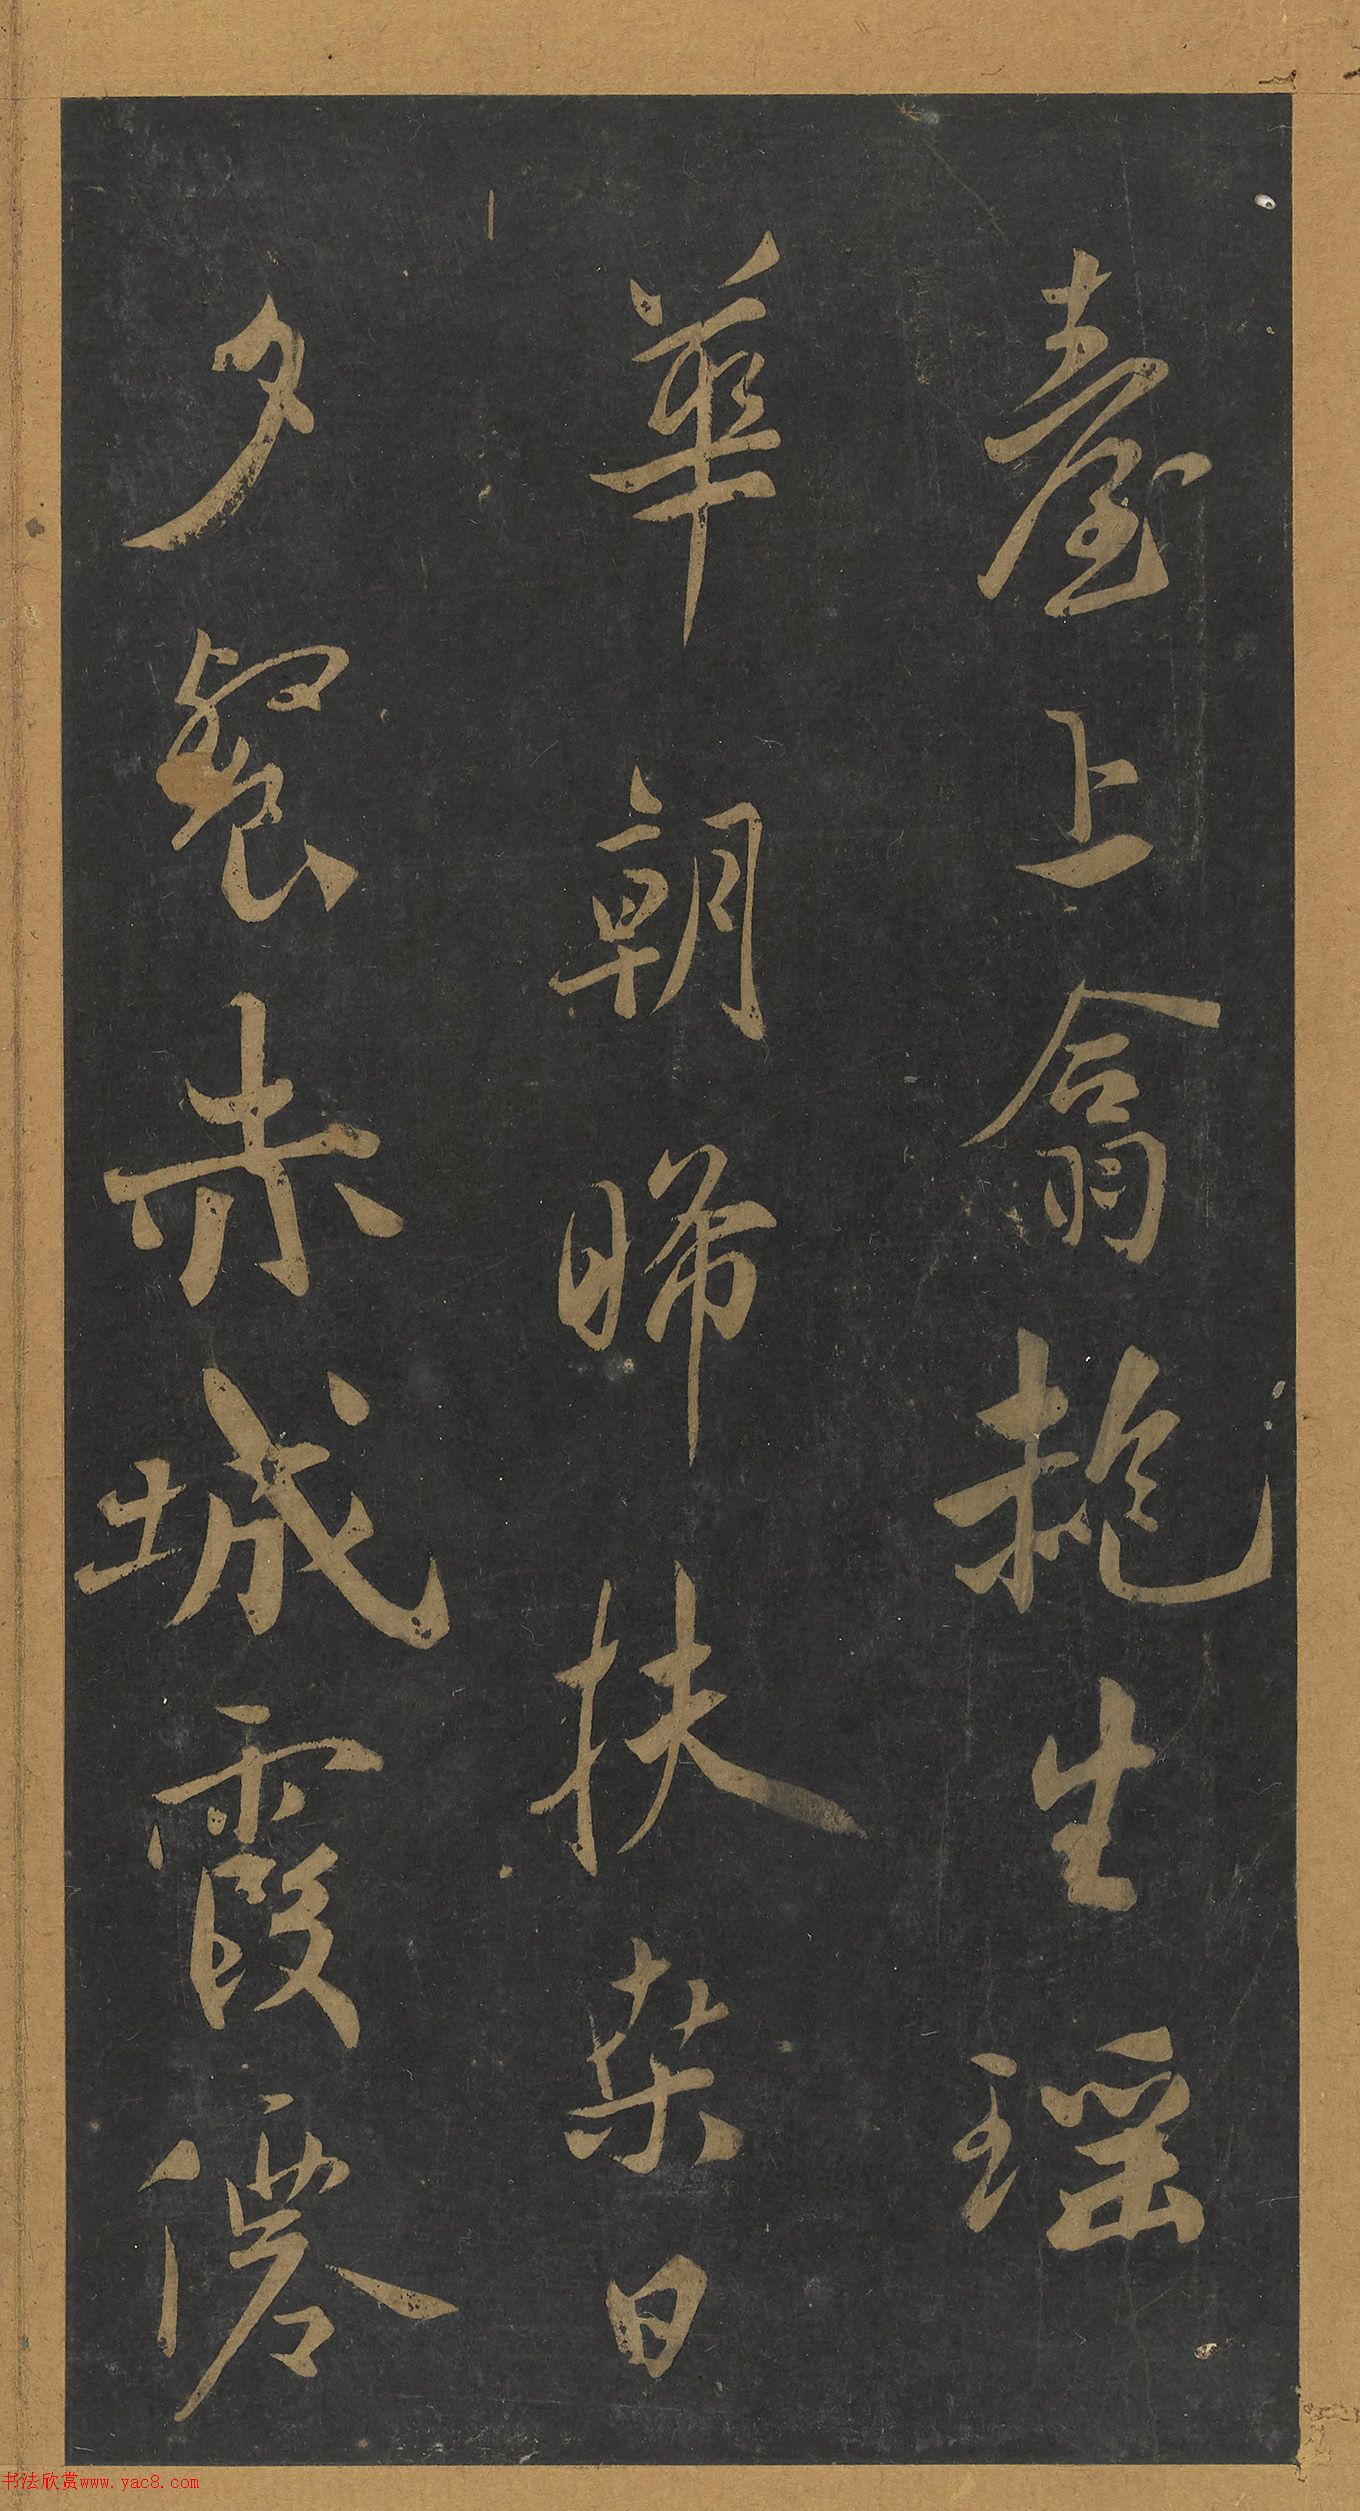 臺上翕艳生瑶
華朝晞扶桑日
夕餐赤城霞僊
书法欣赏www.yac8.com